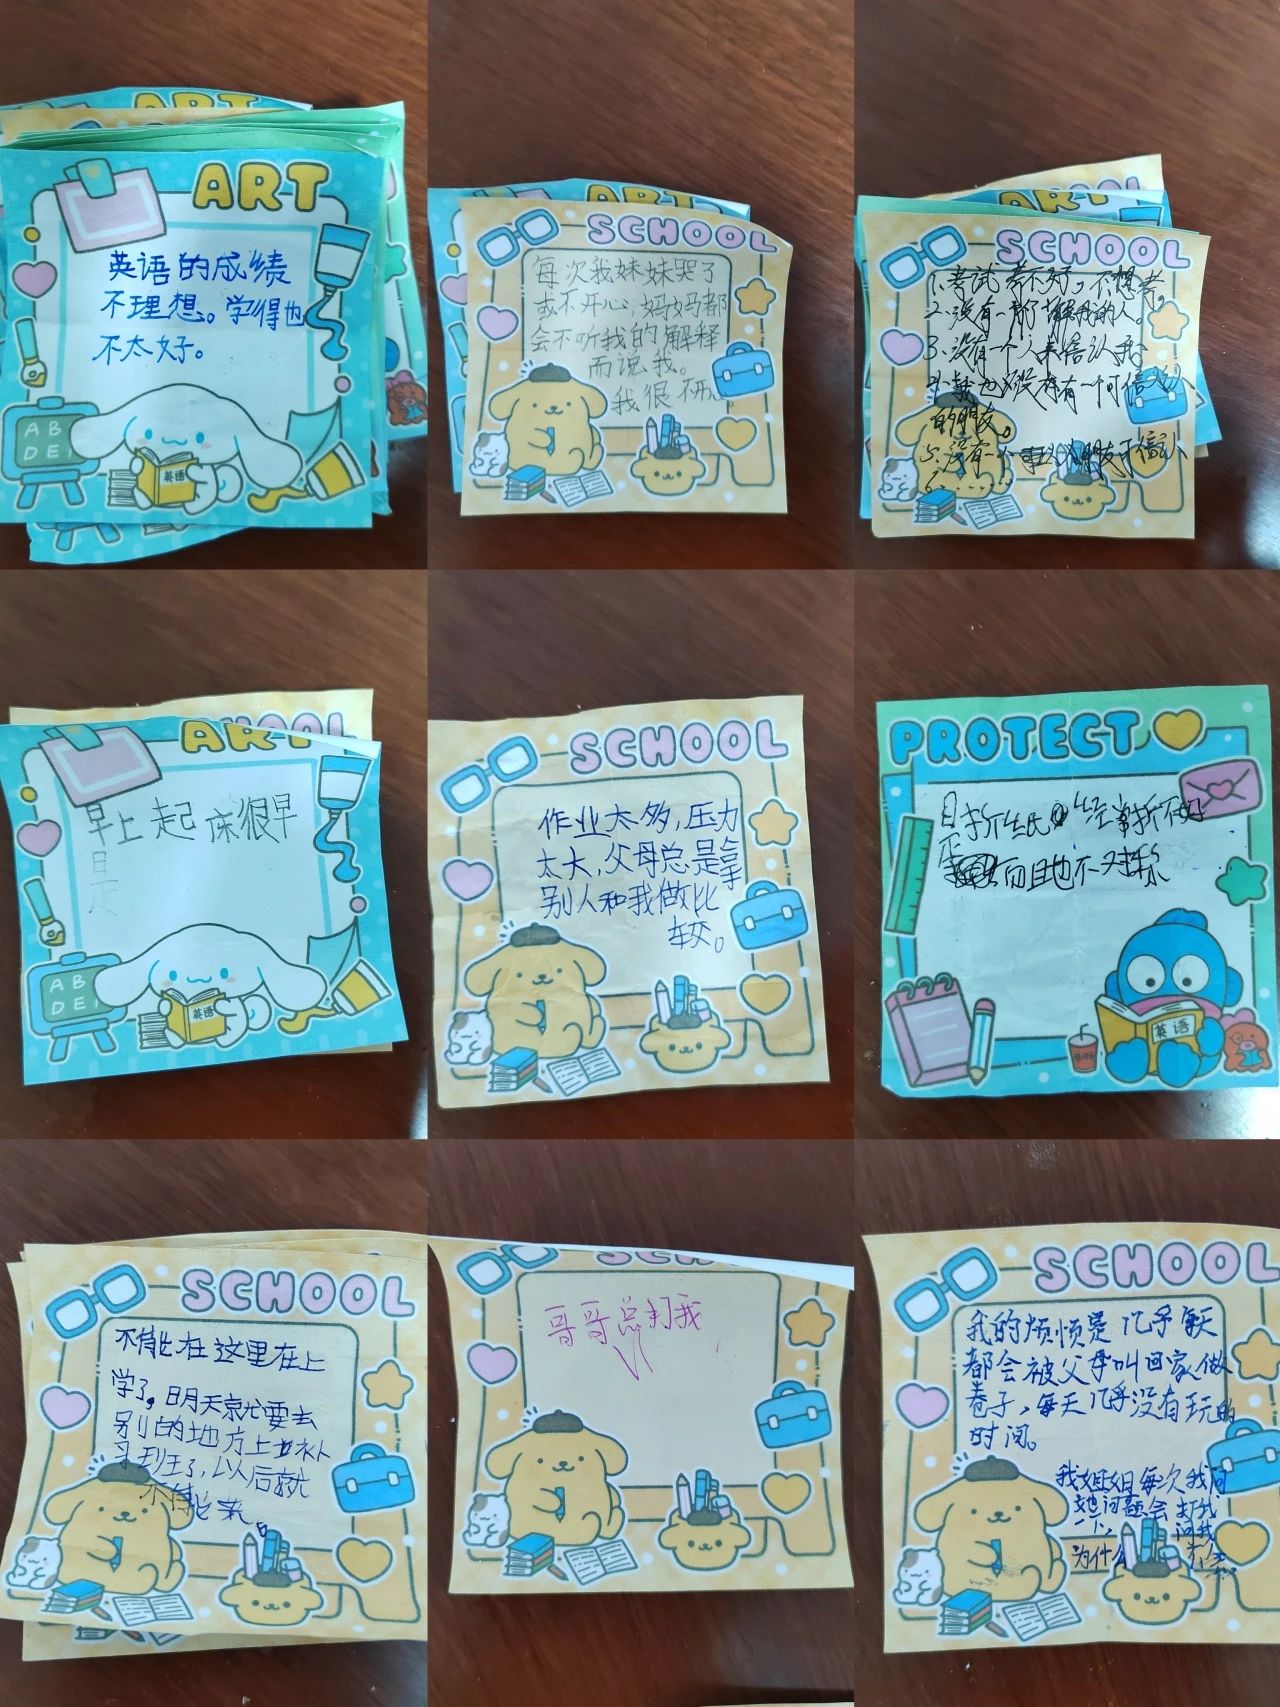 ART
英语的成绩
不理想。学得也
不太好。
A B
D E
英语
SCHOOL
每次我妹妹哭了
或不开心,妈妈都
会不听我的解释
而说我。
我很不
SCHOOL
1.考试考不好,不想考。
2.没有一个了解我的人。
3.没有一个人来信认我
4.我也没有一个可信
的朋友。
5.没有一个
6.……
ART
早上起床很早
A B
D E
英语
SCHOOL
作业太多,压力
太大,父母总是拿
别人和我做比
较。
PROTECT
而且也不
英语
SCHOOL
不能在这里在上
学了。明天就要去
别的地方上补
习班了,以后就
不能来。
SCHOOL
哥哥总打我
SCHOOL
我的烦恼是几乎每天
都会被父母叫回家做
卷子,每天几乎没有玩的
时间。
我姐姐每次我问
问题会打我
一下, 问我
为什么